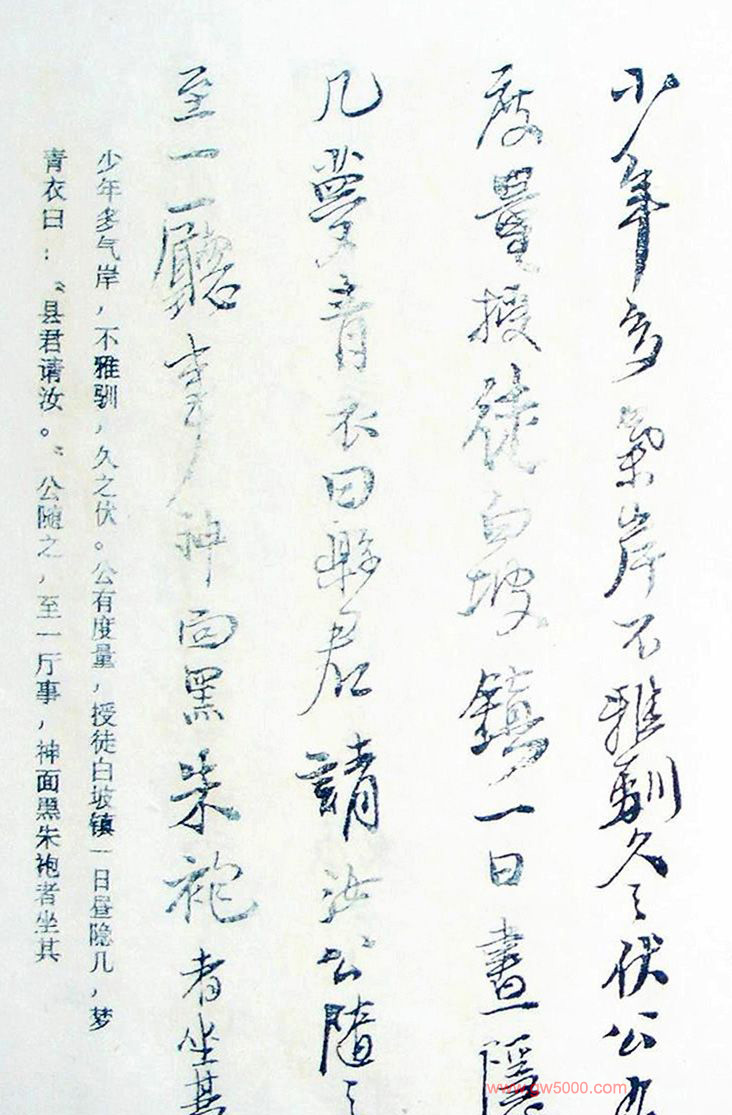 少年多氣岸不雅馴久之伏公有
度量授徒白坡鎮一日晝隱
几夢青衣曰縣君請汝公隨之
至一廳事神面黑朱袍者坐其
少年多气岸，不雅驯，久之伏。公有度量，授徒白坡镇一日昼隐几，梦
青衣曰：“县君请汝。”公随之，至一厅事，神面黑朱袍者坐其
www.gw5000.com